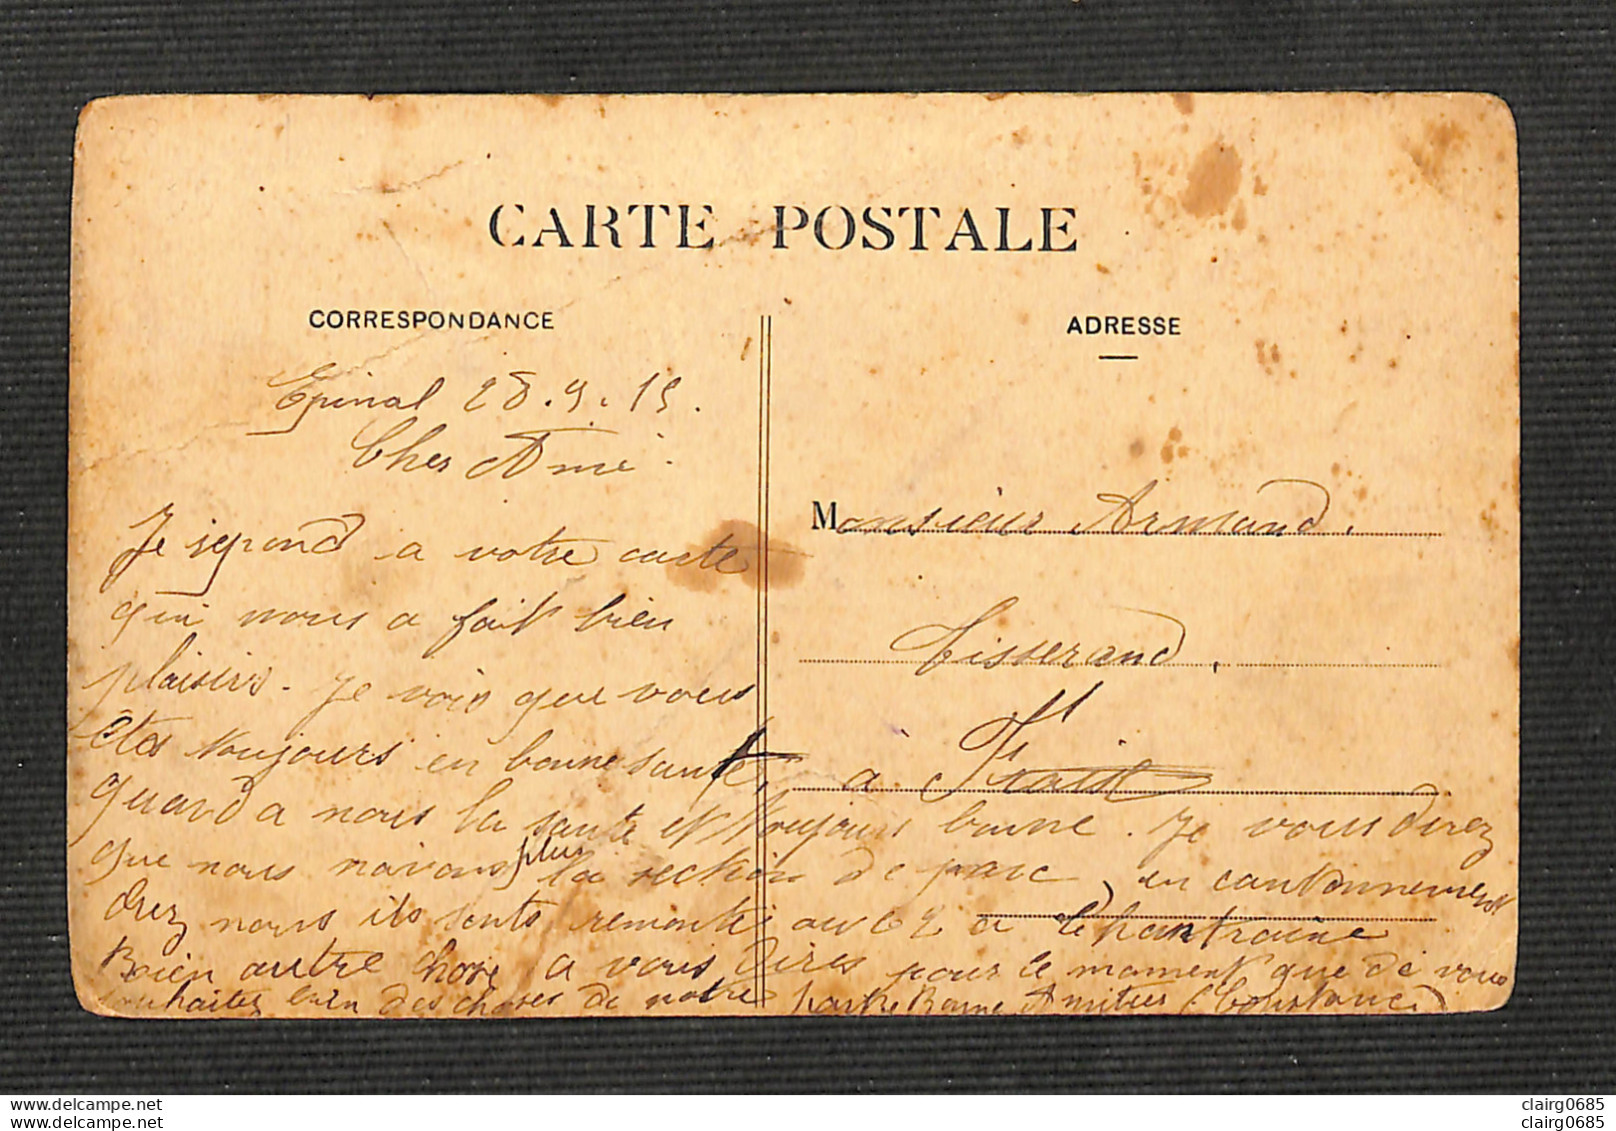 CARTE POSTALE
CORRESPONDANCE
ADRESSE
Epinal 28.9.15.
Cher Ami.
Je repond a votre carte
qui nous a fait bien
plaisirs. Je vois que vous
etes toujours en bonne santé,
quand a nous la sante est toujours bonne. Je vous direz
que nous navons plus la section de parc, en cantonnement
chez nous ils sonts remonté au 62 a Chantraine
Bien autre chose a vous dires pour le moment que de vous
souhaiter bien des choses de notre part Bonne Amitiés (Constance)
Monsieur Armand.
Tisserand,
à
www.delcampe.net
clairg0685
www.delcampe.net
clairg0685